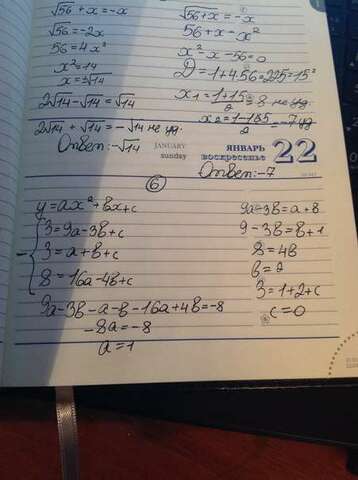 √56 + x = -x
√56 = -2x
56 = 4x²
x² = 14
x = ±√14
2√14 - √14 = √14
2√14 + √14 = -√14 не уд.
Ответ: -√14
√56+x = -x
56+x = x²
x² - x - 56 = 0
D = 1+4·56 = 225 = 15²
x₁ = (1+15)/2 = 8 не уд.
x₂ = (1-15)/2 = -7 уд
Ответ: -7
JANUARY
sunday
ЯНВАРЬ
воскресенье
22
6
y = ax² + bx + c
3 = 9a - 3b + c
3 = a + b + c
8 = 16a - 4b + c
9a - 3b - a - b - 16a + 4b = -8
-8a = -8
a = 1
9a - 3b = a + b
9 - 3b = b + 1
8 = 4b
b = 2
3 = 1 + 2 + c
c = 0